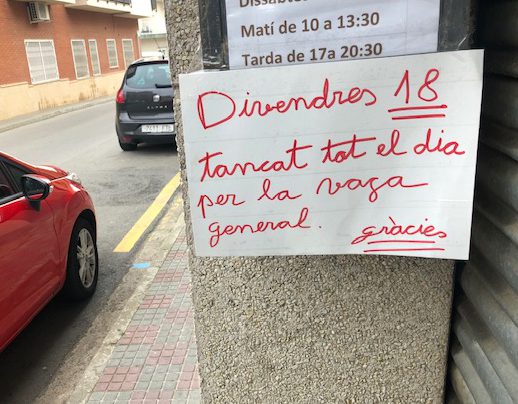 Dissabtes
Matí de 10 a 13:30
Tarda de 17 a 20:30
Divendres 18
tancat tot el dia
per la vaga
general.
gràcies